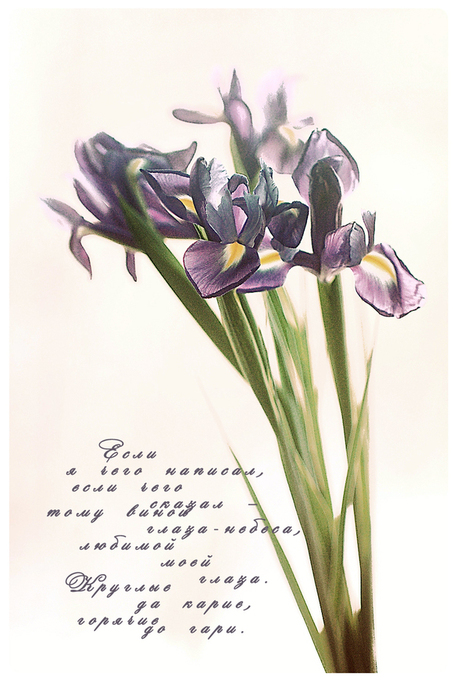 Если
я чего написал,
если чего
сказал –
тому виной
глаза-небеса,
любимой
моей
глаза.
Круглые
да карие,
горячие
до гари.